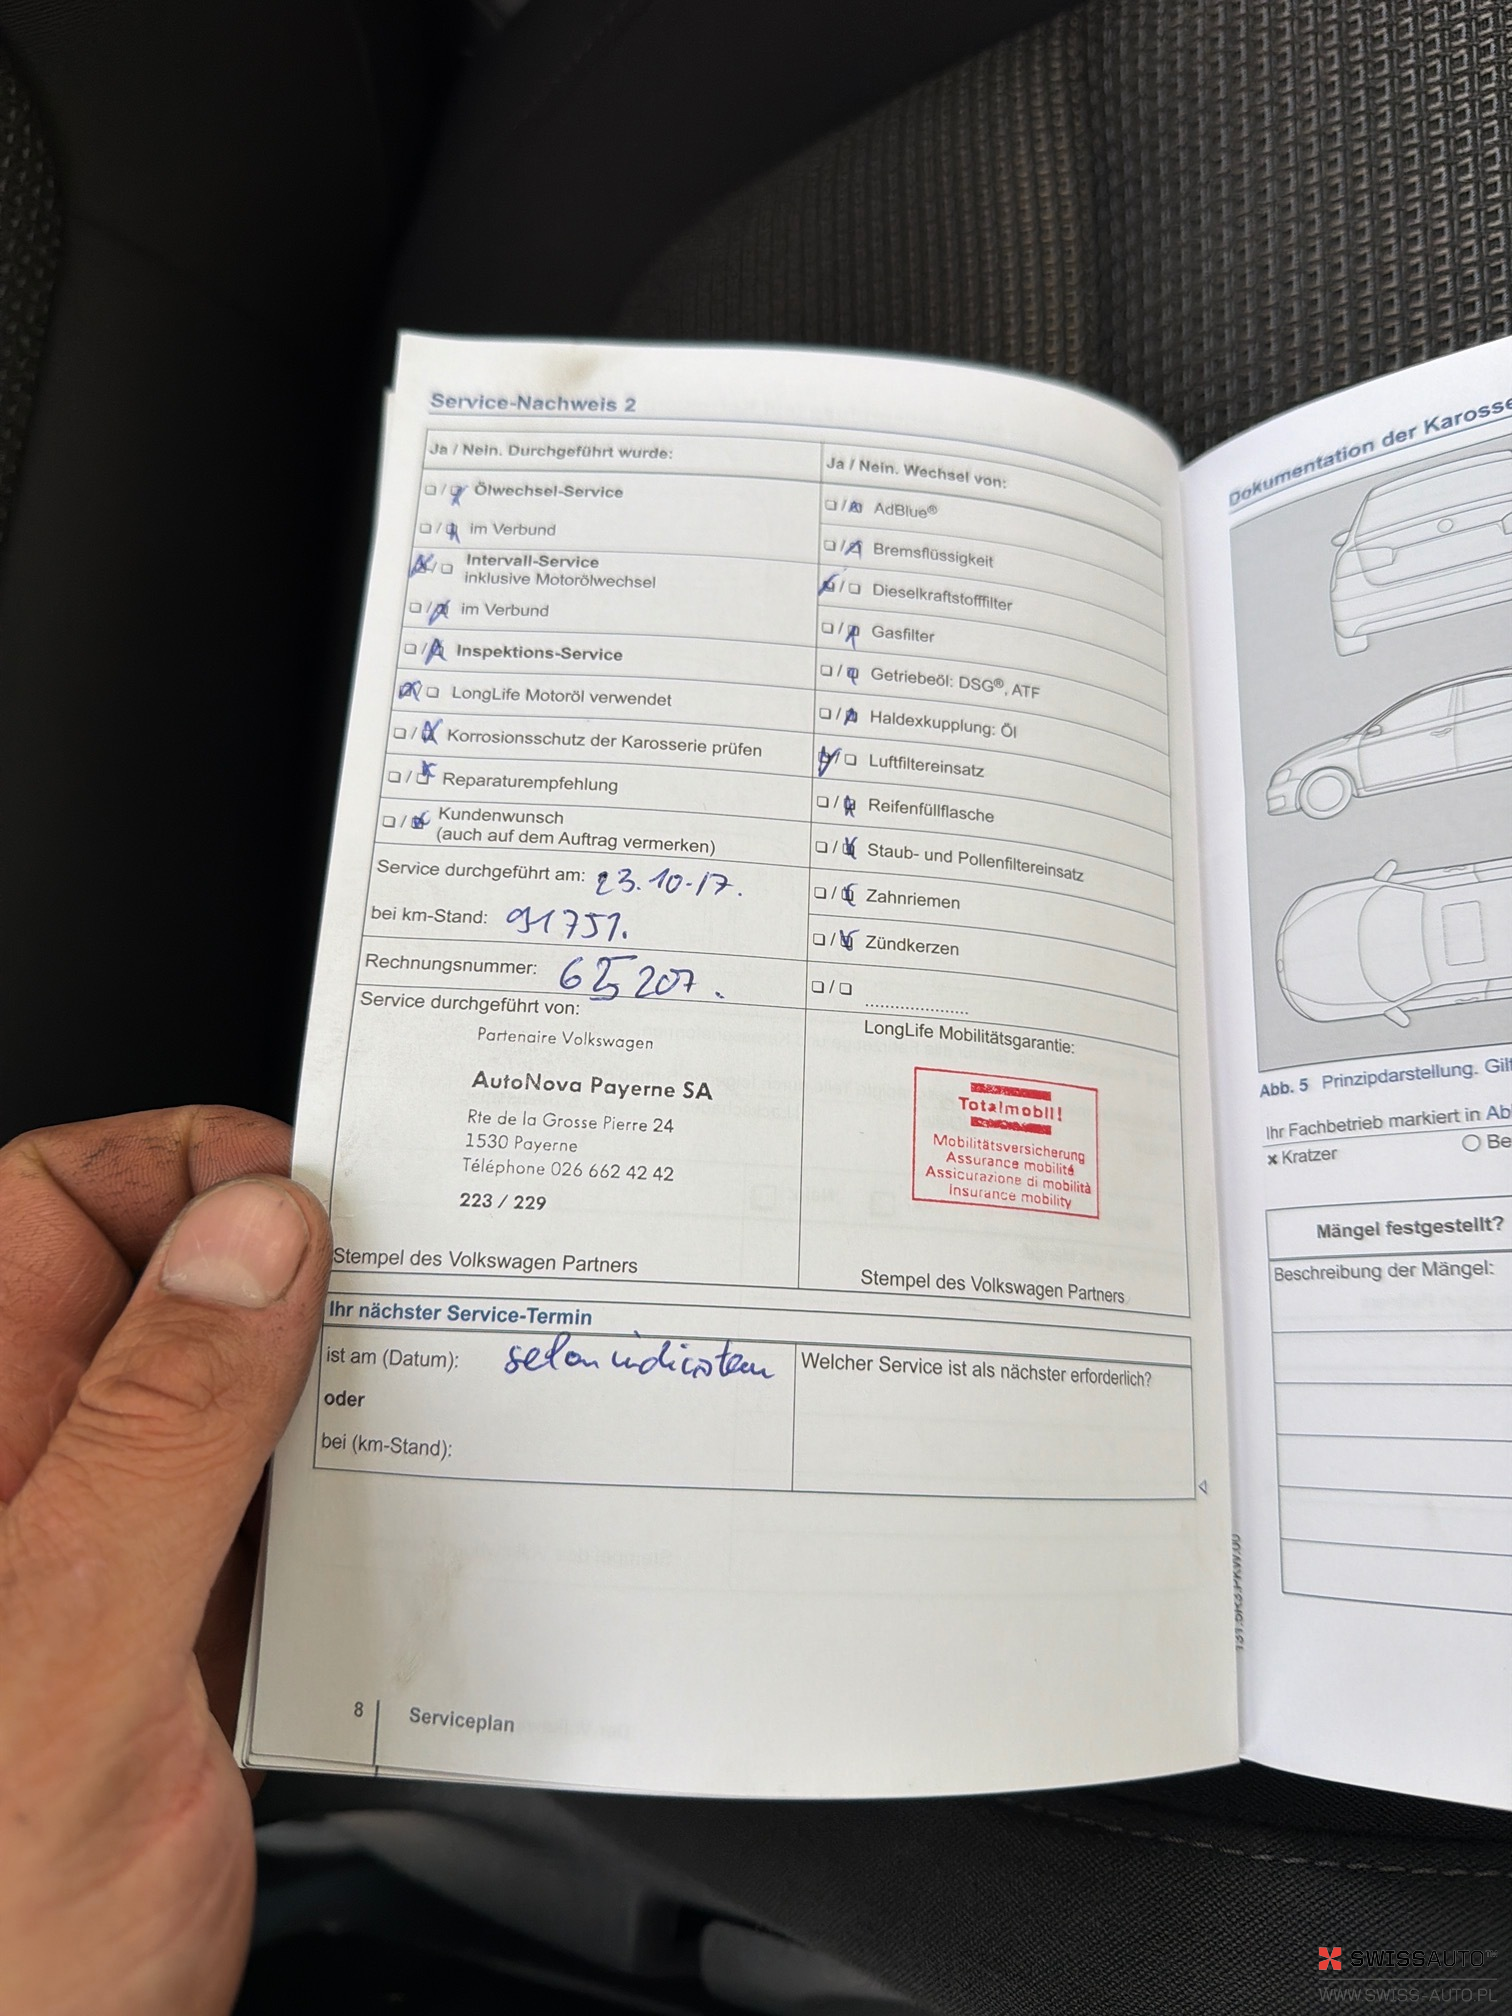 Service-Nachweis 2
Ja / Nein. Durchgeführt wurde:
Ölwechsel-Service
im Verbund
Intervall-Service
inklusive Motorölwechsel
im Verbund
Inspektions-Service
LongLife Motoröl verwendet
Korrosionsschutz der Karosserie prüfen
Reparaturempfehlung
Kundenwunsch
(auch auf dem Auftrag vermerken)
Service durchgeführt am: 23.10-17.
bei km-Stand: 91751.
Rechnungsnummer: 65207.
Service durchgeführt von:
Partenaire Volkswagen
AutoNova Payerne SA
Rte de la Grosse Pierre 24
1530 Payerne
Téléphone 026 662 42 42
223 / 229
Stempel des Volkswagen Partners
Ja / Nein. Wechsel von:
AdBlue®
Bremsflüssigkeit
Dieselkraftstofffilter
Gasfilter
Getriebeöl: DSG®, ATF
Haldexkupplung: Öl
Luftfiltereinsatz
Reifenfüllflasche
Staub- und Pollenfiltereinsatz
Zahnriemen
Zündkerzen
LongLife Mobilitätsgarantie:
Totalmobil!
Mobilitätsversicherung
Assurance mobilité
Assicurazione di mobilità
Insurance mobility
Stempel des Volkswagen Partners
Ihr nächster Service-Termin
ist am (Datum): selon indication
oder
bei (km-Stand):
Welcher Service ist als nächster erforderlich?
8 Serviceplan
Dokumentation der Karosse
Abb. 5 Prinzipdarstellung. Gilt
Ihr Fachbetrieb markiert in Ab
× Kratzer
Be
Mängel festgestellt?
Beschreibung der Mängel:
SWISSAUTO
WWW.SWISS-AUTO.PL